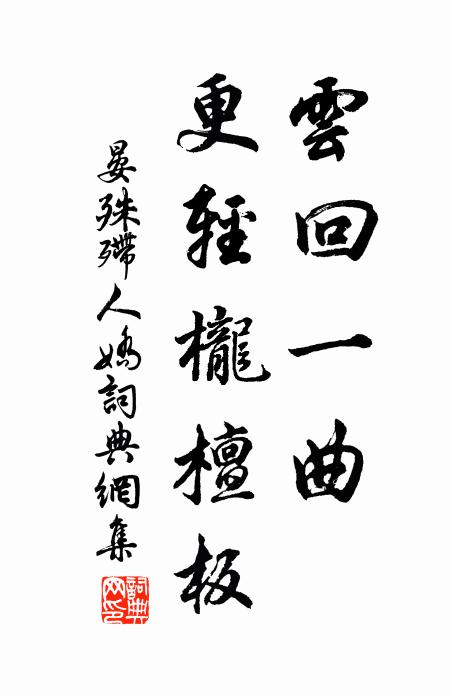 雲回一曲
更輕櫳檀板
晏殊殢人嬌詞典網集
詞典網印